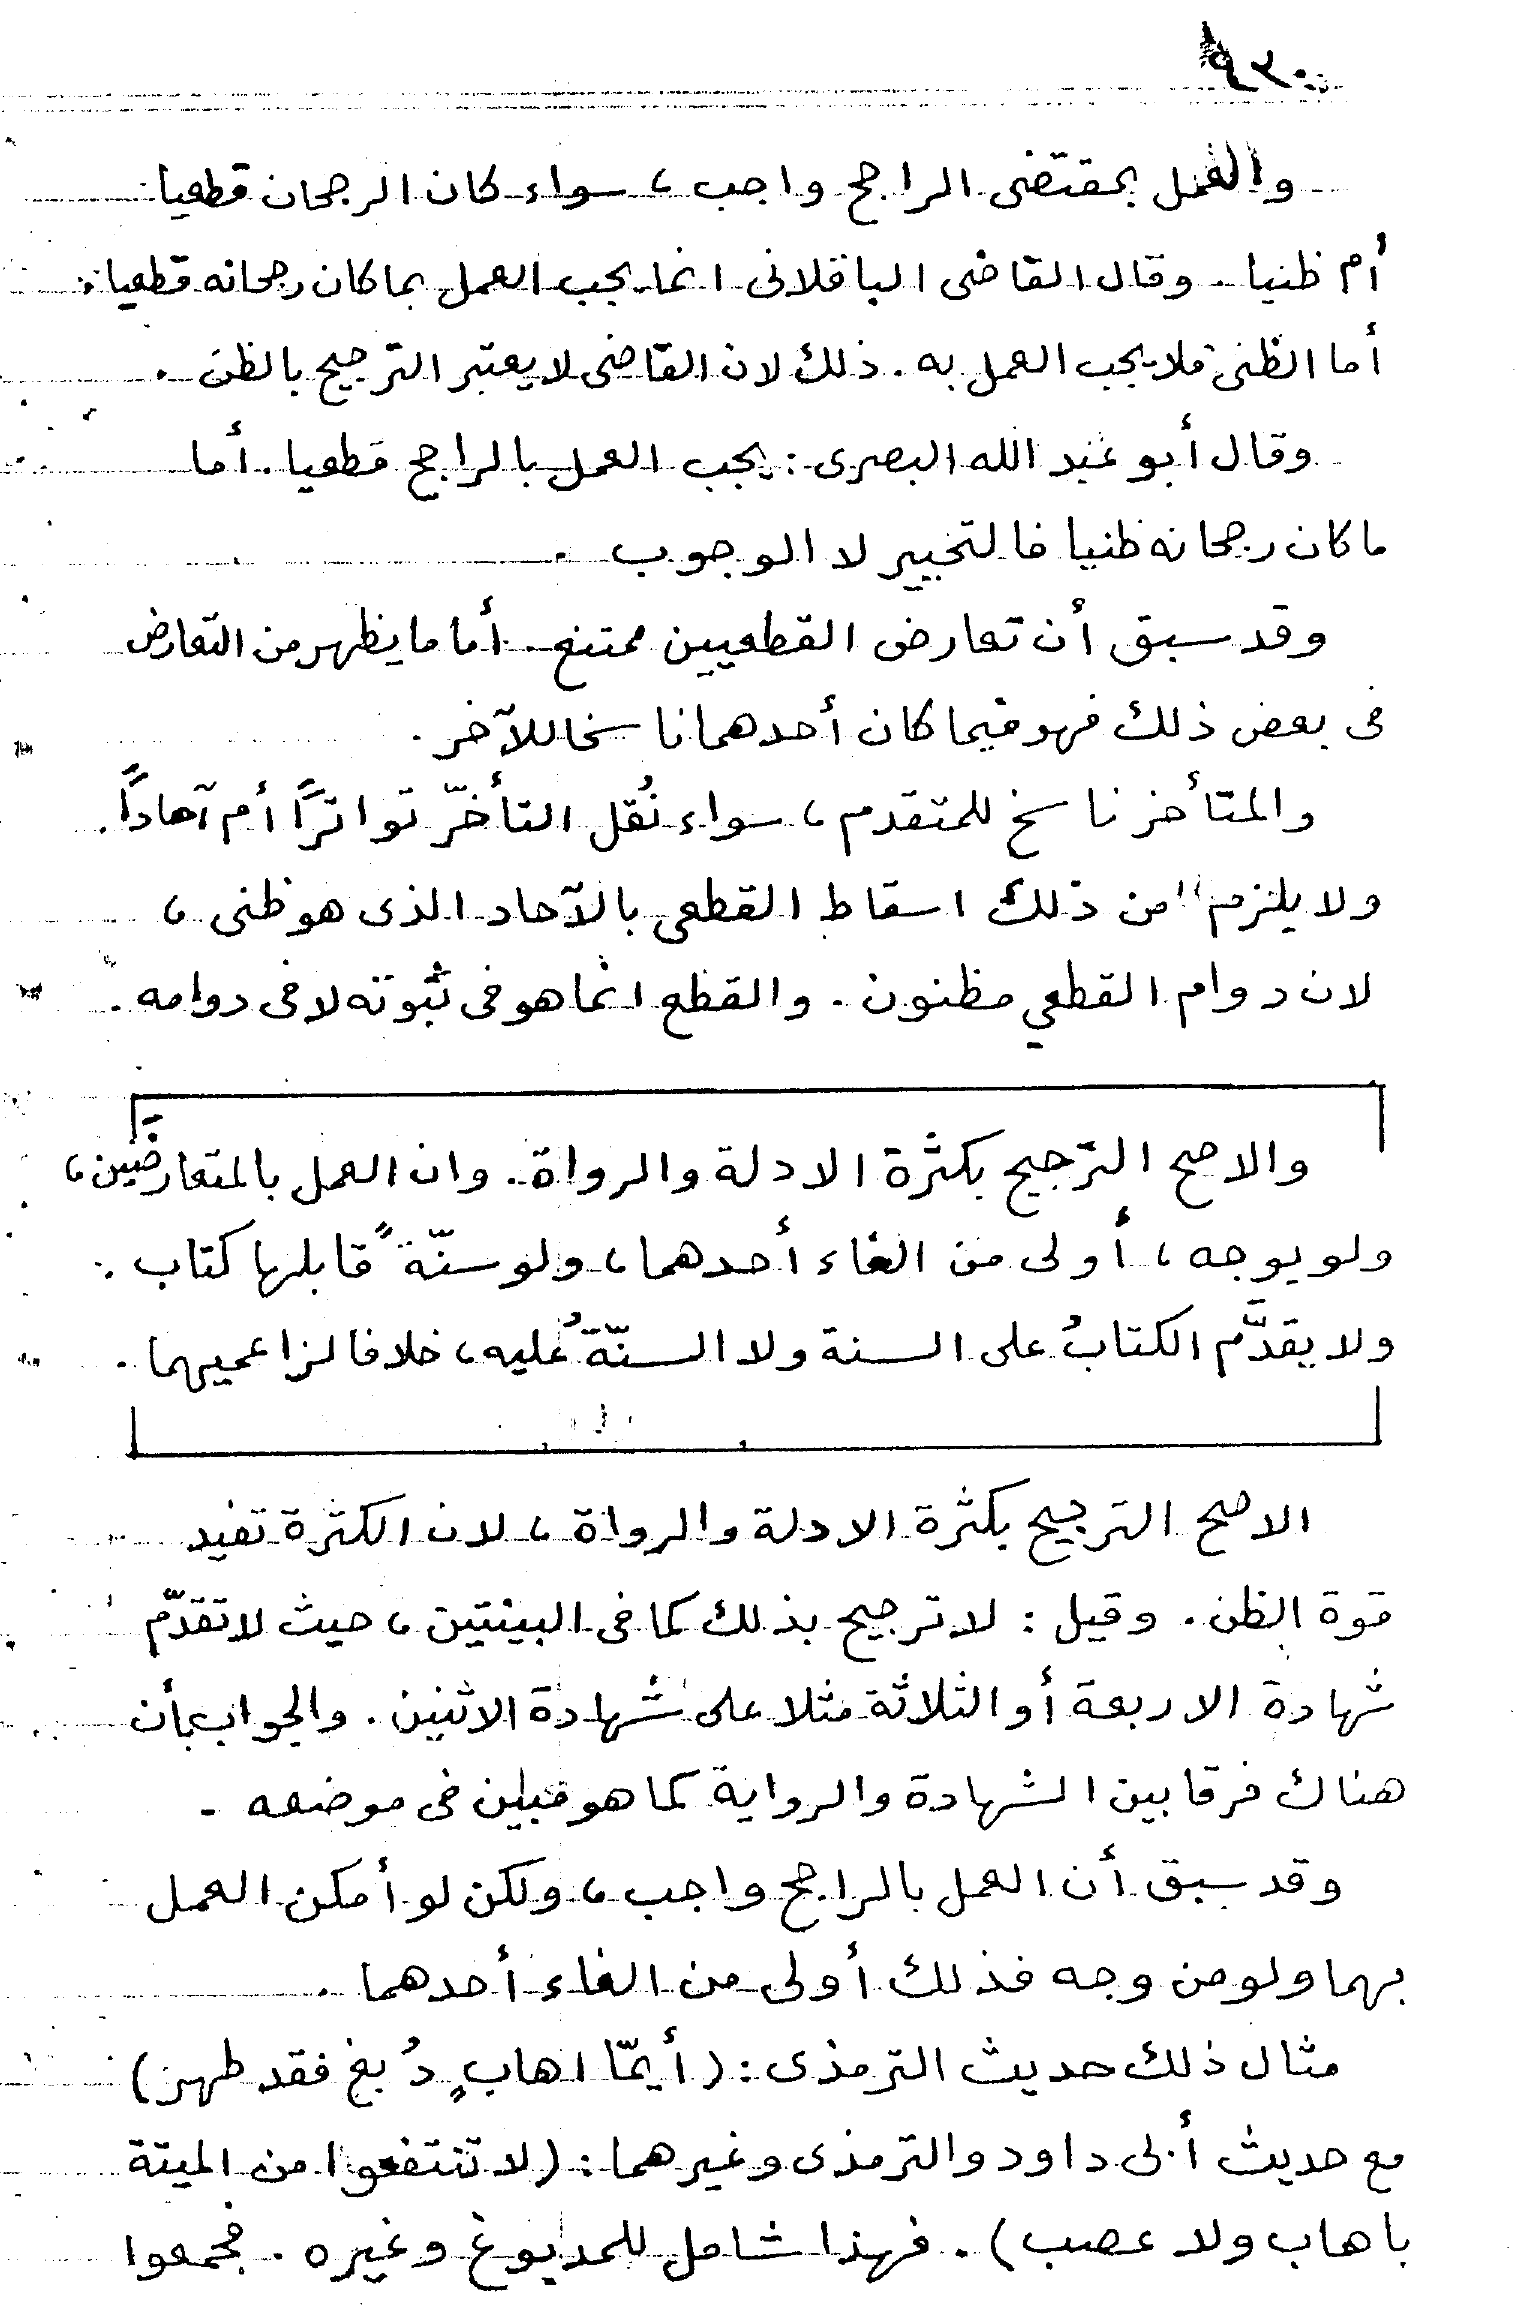 والعمل بمقتضى الراجح واجب ، سواء كان الرجحان قطعيا
أم ظنيا . وقال القاضى الباقلانى انما يجب العمل بما كان رجحانه قطعيا .
أما الظنى فلا يجب العمل به . ذلك لان القاضى لا يعتبر الترجيح بالظن .
وقال أبو عبد الله البصرى : يجب العمل بالراجح قطعيا . أما
ما كان رجحانه ظنيا فالتخيير لا الوجوب .
وقد سبق أن تعارض القطعيين ممتنع . أما ما يظهر من التعارض
فى بعض ذلك فهو فيما كان أحدهما ناسخا للآخر .
والمتأخر ناسخ للمتقدم ، سواء نُقل التأخّر تواترًا أم آحادًا .
ولا يلزم من ذلك اسقاط القطعى بالآحاد الذى هو ظنى ،
لان دوام القطعي مظنون . والقطع انما هو فى ثبوته لا فى دوامه .
والاصح الترجيح بكثرة الادلة والرواة . وان العمل بالمتعارضَين ،
ولو بوجه ، أولى من الغاء أحدهما ، ولو سنّةً قابلها كتاب .
ولا يقدَّم الكتابُ على السنة ولا السنّةُ عليه ، خلافا لزاعميهما .
الاصح الترجيح بكثرة الادلة والرواة ، لان الكثرة تفيد
قوة الظن . وقيل : لا ترجيح بذلك كما فى البينتين ، حيث لا تقدّم
شهادة الاربعة أو الثلاثة مثلا على شهادة الاثنين . والجواب بأن
هناك فرقا بين الشهادة والرواية كما هو مبين فى موضعه .
وقد سبق أن العمل بالراجح واجب ، ولكن لو أمكن العمل
بهما ولو من وجه فذلك أولى من الغاء أحدهما .
مثال ذلك حديث الترمذى : ( أيّما اهابٍ دُبغ فقد طهر )
مع حديث أبى داود والترمذى وغيرهما : ( لا تنتفعوا من الميتة
باهاب ولا عصب ) . فهذا شامل للمدبوغ وغيره . فجمعوا